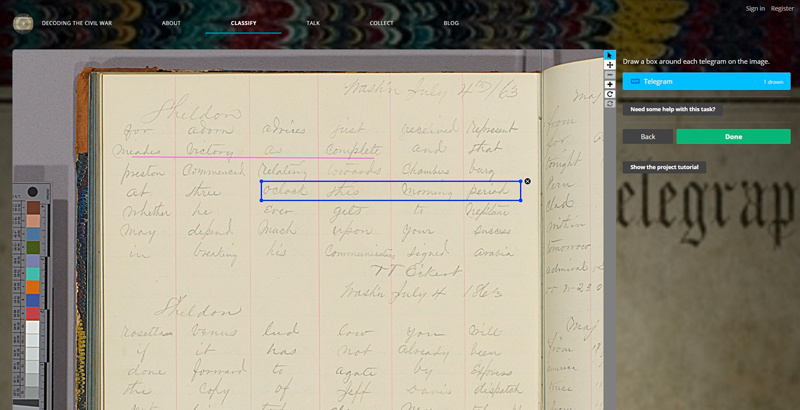 Sign in Register
DECODING THE CIVIL WAR ABOUT CLASSIFY TALK COLLECT BLOG
Draw a box around each telegram on the image.
Telegram 1 drawn
Need some help with this task?
Back Done
Show the project tutorial
elegrap
Wash'n July 4th/63
Sheldon
for adorn advises just received Represent
Meades Victory as complete and that
preston Commenced Relating towards Chambers burg
at three Oclock this Morning period
Whether he Ever gets to Neptune
May depend Much upon your Success
in breaking his Communication Signed Arabia
TT Eckert
Wash'n July 4 1863
Sheldon
rosetta Venus lud low you Will
if it has not Already been
done forward to agate by Express
the Copy of Jeff Davis dispatch
Maj
from
bought
Peru
clad
within
tomorrow
admiral
Maj
from